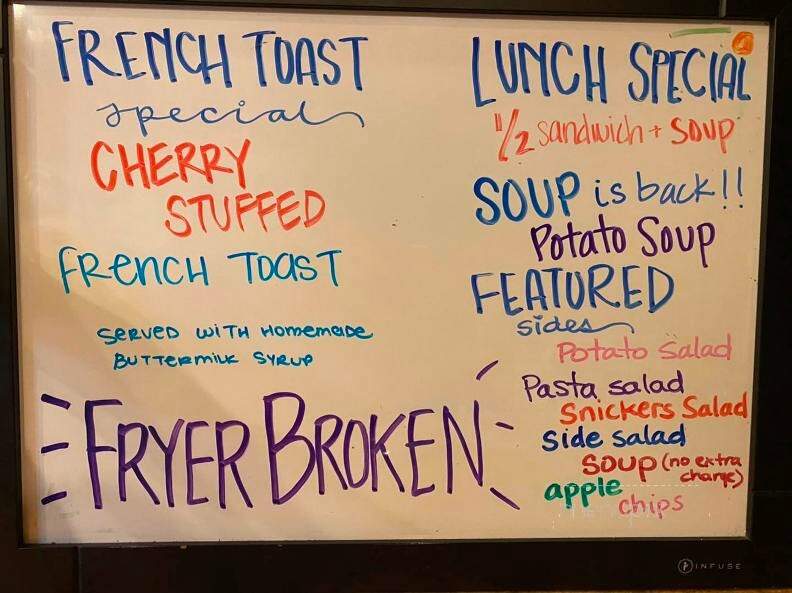 FRENCH TOAST
special
CHERRY
STUFFED
FRENCH TOAST
SERVED WITH HOMEMADE
BUTTERMILK SYRUP
FRYER BROKEN
LUNCH SPECIAL
1/2 sandwich + SOUP
SOUP is back!!
Potato Soup
FEATURED
sides
Potato Salad
Pasta salad
Snickers Salad
side salad
SOUP (no extra
charge)
apple
chips
INFUSE